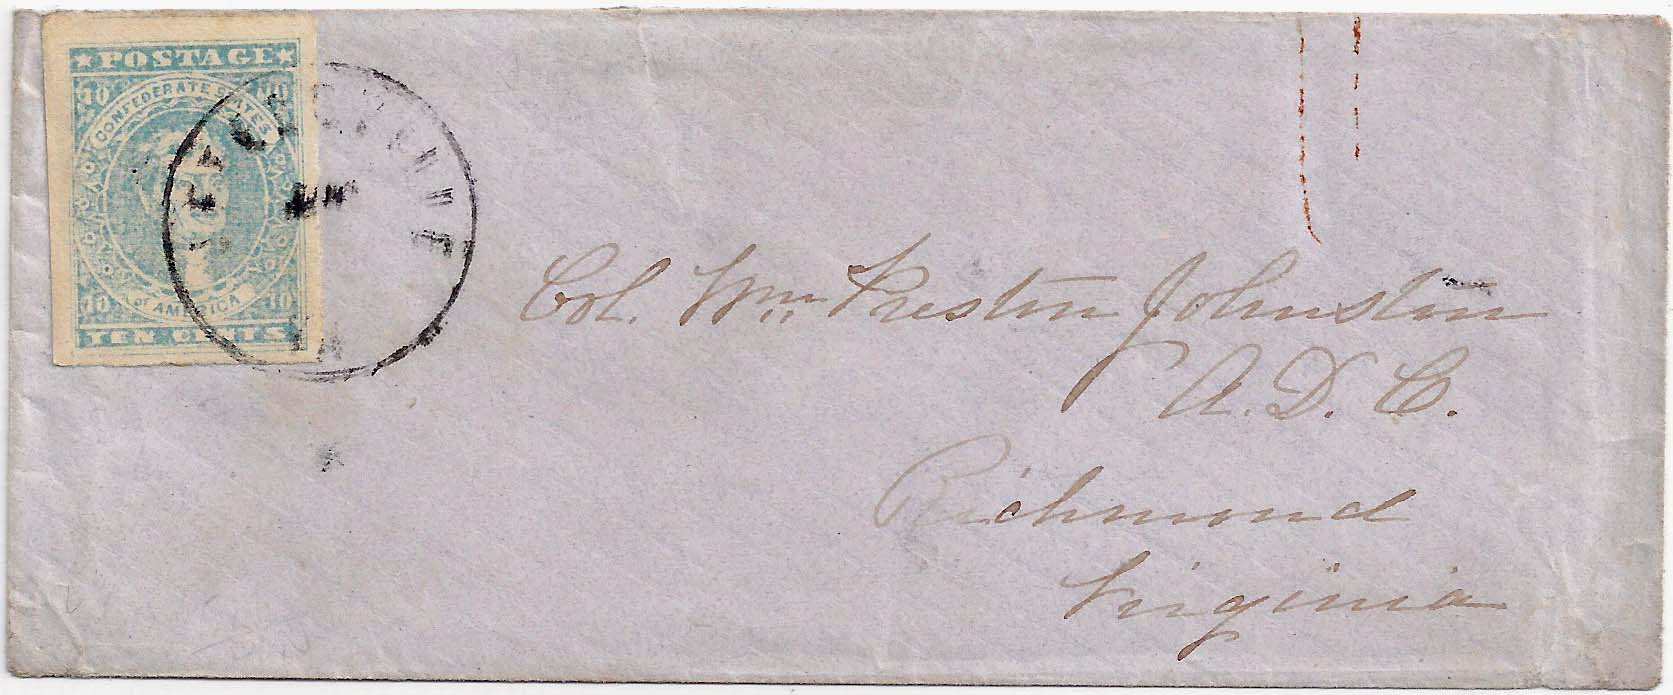 POSTAGE
10 10
CONFEDERATE STATES
of AMERICA
10 10
TEN CENTS
Col. Wm. Preston Johnston
A. D. C.
Richmond
Virginia